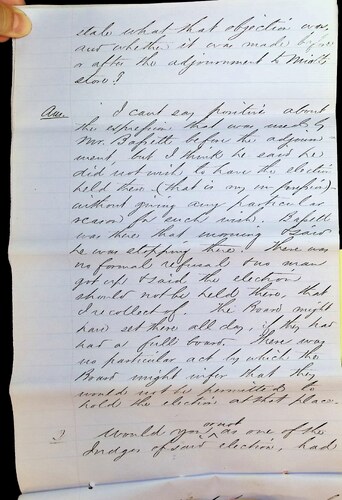 state what that objection was,
and whether it was made before
or after the adjournment to
store?
Ans. I cant say positive about
the expression that was used by
Mr. Bassett before the adjourn-
ment, but I think he said he
did not wish to have the election
held there (that is my impression)
without giving any particular
reason for such wish. Bassett
was there that morning & said
he was stopping there. There was
no formal refusal & no man
got up & said the election
should not be held there, that
I recollect of. The Board might
have set there all day, if they had
had a full board. There was
no particular act by which the
Board might infer that they
would not be permitted to
hold the election at that place.
or not
3 Would you ^ as one of the
Judges of said election, had